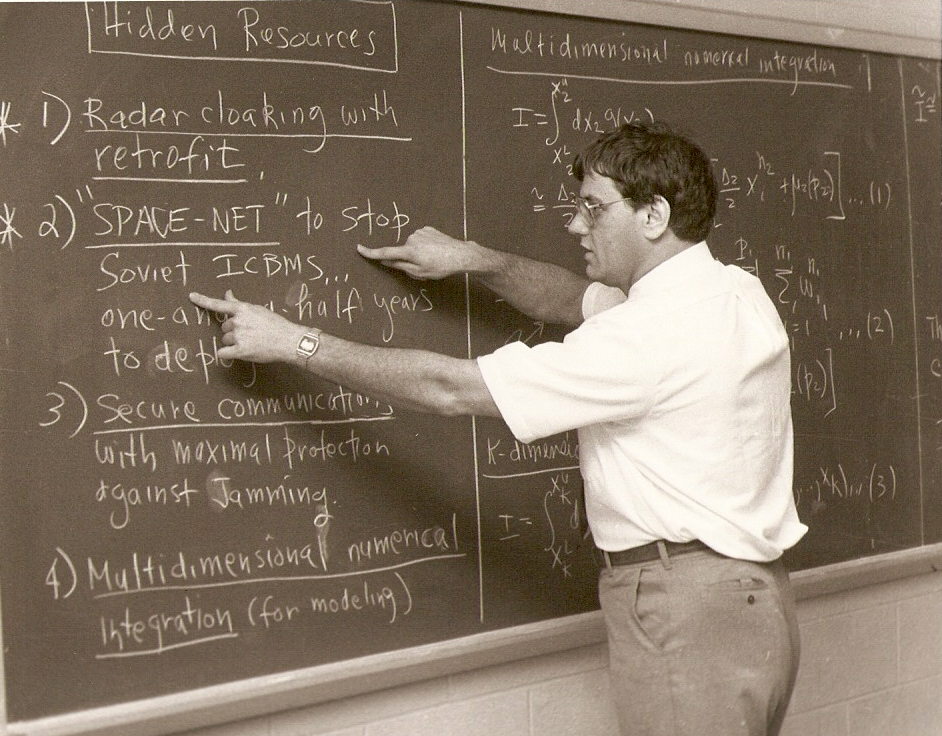 Hidden Resources
* 1) Radar cloaking with
retrofit.
* 2) "SPACE-NET" to stop
Soviet ICBMS...
one-an half years
to depl
3) Secure communications
with maximal protection
against Jamming.
4) Multidimensional numerical
Integration (for modeling)
Multidimensional numerical integration
I = ∫ dx₂ g(x₂)
X₂ᵘ
X₂ᴸ
≅ Δ₂/2
Δ₂/2 Xᵢⁿ² + μ₂(p₂)] ... (1)
... (2)
(p₂)]
K-dimensio
I = ∫ d
X_Kᵘ
X_Kᴸ
..., x_K) ... (3)